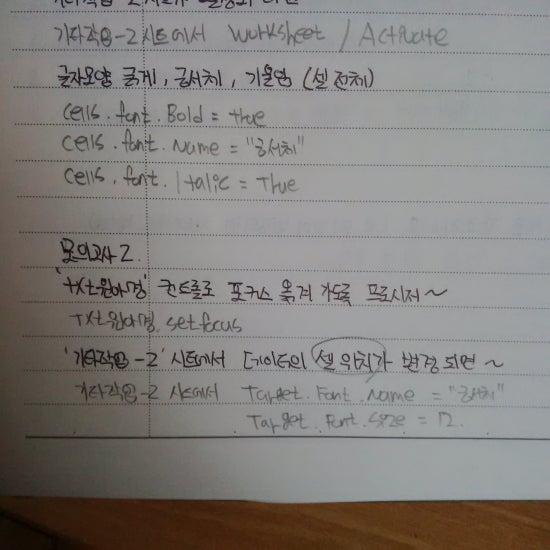 기타작업-2 시트에서 Worksheet / Activate
글자모양 굵게, 궁서체, 기울임 (셀 전체)
cells.font.Bold = true
cells.font.Name = "궁서체"
cells.font.Italic = True
모의고사 2.
'txt원아명' 컨트롤로 포커스 옮겨 가도록 프로시저~
txt원아명.setfocus
'기타작업-2' 시트에서 데이터의 셀 위치가 변경 되면 ~
기타작업-2 시트에서 Target.Font.Name = "궁서체"
Target.Font.Size = 12.